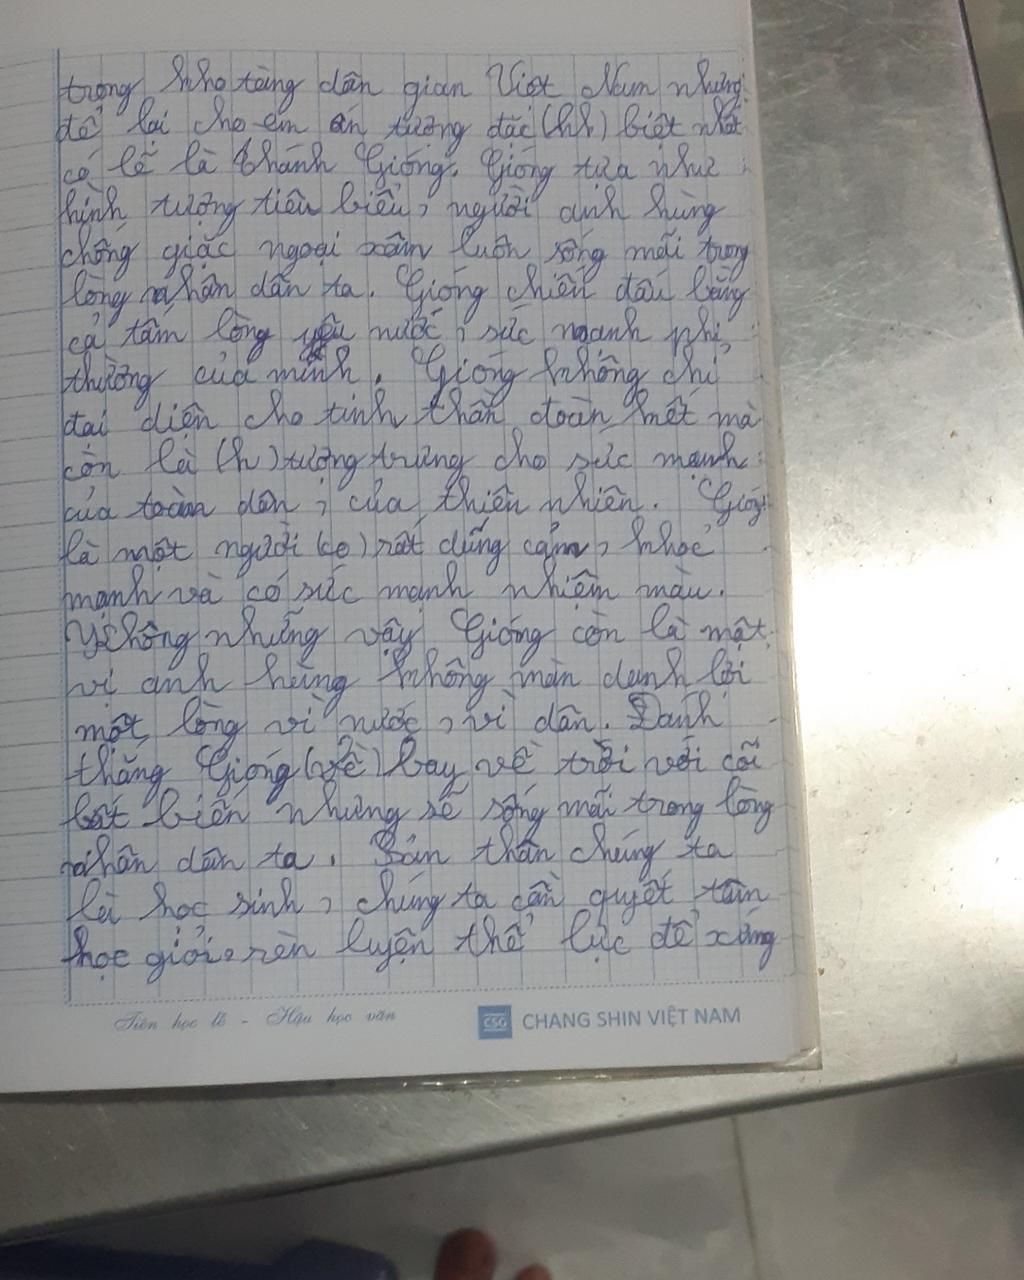 trong kho tàng dân gian Việt Nam nhưng
để lại cho em ấn tượng đặc (hh) biệt nhất
có lẽ là thánh Gióng. Gióng tựa như
hình tượng tiêu biểu, người anh hùng
chống giặc ngoại xâm luôn sống mãi trong
lòng nhân dân ta. Gióng chiến đấu bằng
cả tấm lòng yêu nước, sức mạnh phi
thường của mình. Gióng không chỉ
đại diện cho tinh thần đoàn kết mà
còn là (h) tượng trưng cho sức mạnh
của toàn dân, của thiên nhiên. Gióng
là một người (co) rất dũng cảm, khoẻ
mạnh và có sức mạnh nhiệm màu.
Không những vậy Gióng còn là một
vị anh hùng không màn danh lợi
một lòng vì nước, vì dân. Đánh
thắng Gióng (về) bay về trời với cõi
bất biến nhưng sẽ sống mãi trong lòng
nhân dân ta. Bản thân chúng ta
là học sinh, chúng ta cần quyết tâm
học giỏi, rèn luyện thể lực để xứng
Tiên học lễ - Hậu học văn
CSG CHANG SHIN VIỆT NAM